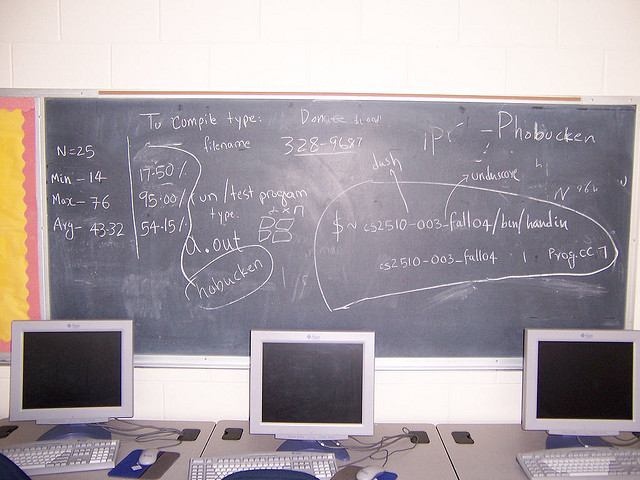 To compile type:
filename
328-9687
- Phobucken
N=25
Min - 14
Max - 76
Avg - 43.32
17.50%
95.00%
54.15%
run/test program
type:
a.out
hobucken
dash
underscore
$~ cs2510-003_fall04/bin/handin
cs2510-003_fall04 1 Prog.CC 7